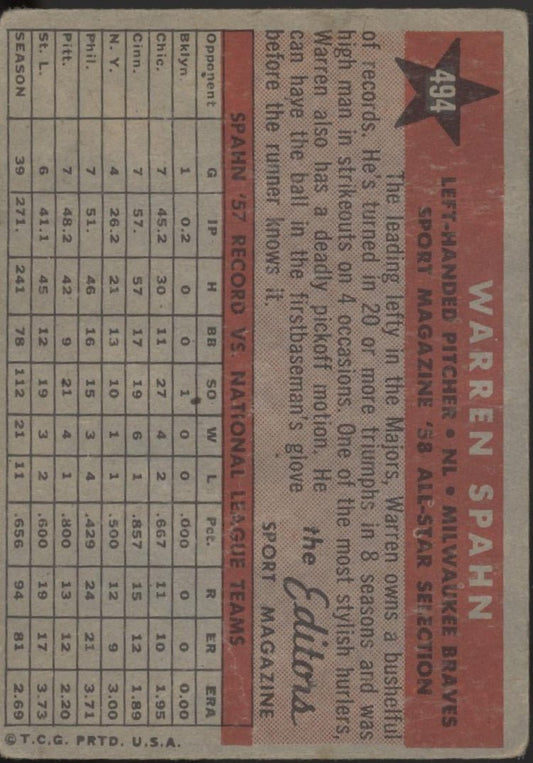 494
WARREN SPAHN
LEFT-HANDED PITCHER • NL • MILWAUKEE BRAVES
SPORT MAGAZINE '58 ALL-STAR SELECTION
The leading lefty in the Majors, Warren owns a bushelful
of records. He's turned in 20 or more triumphs in 8 seasons and was
high man in strikeouts on 4 occasions. One of the most stylish hurlers,
Warren also has a deadly pickoff motion. He
can have the ball in the firstbaseman's glove
before the runner knows it.
the Editors
SPORT MAGAZINE
SPAHN '57 RECORD VS. NATIONAL LEAGUE TEAMS
Opponent G IP H BB SO W L Pct. R ER ERA
Bklyn. 1 0.2 0 0 1 0 0 .000 0 0 0.00
Chic. 7 45.2 30 11 27 4 2 .667 11 10 1.95
Cinn. 7 57. 57 17 19 6 1 .857 15 12 1.89
N. Y. 4 26.2 21 13 10 1 1 .500 12 9 3.00
Phil. 7 51. 46 16 15 3 4 .429 24 21 3.71
Pitt. 7 48.2 42 9 21 4 1 .800 13 12 2.20
St. L. 6 41.1 45 12 19 3 2 .600 19 17 3.73
SEASON 39 271. 241 78 112 21 11 .656 94 81 2.69
© T.C.G. PRTD. U.S.A.